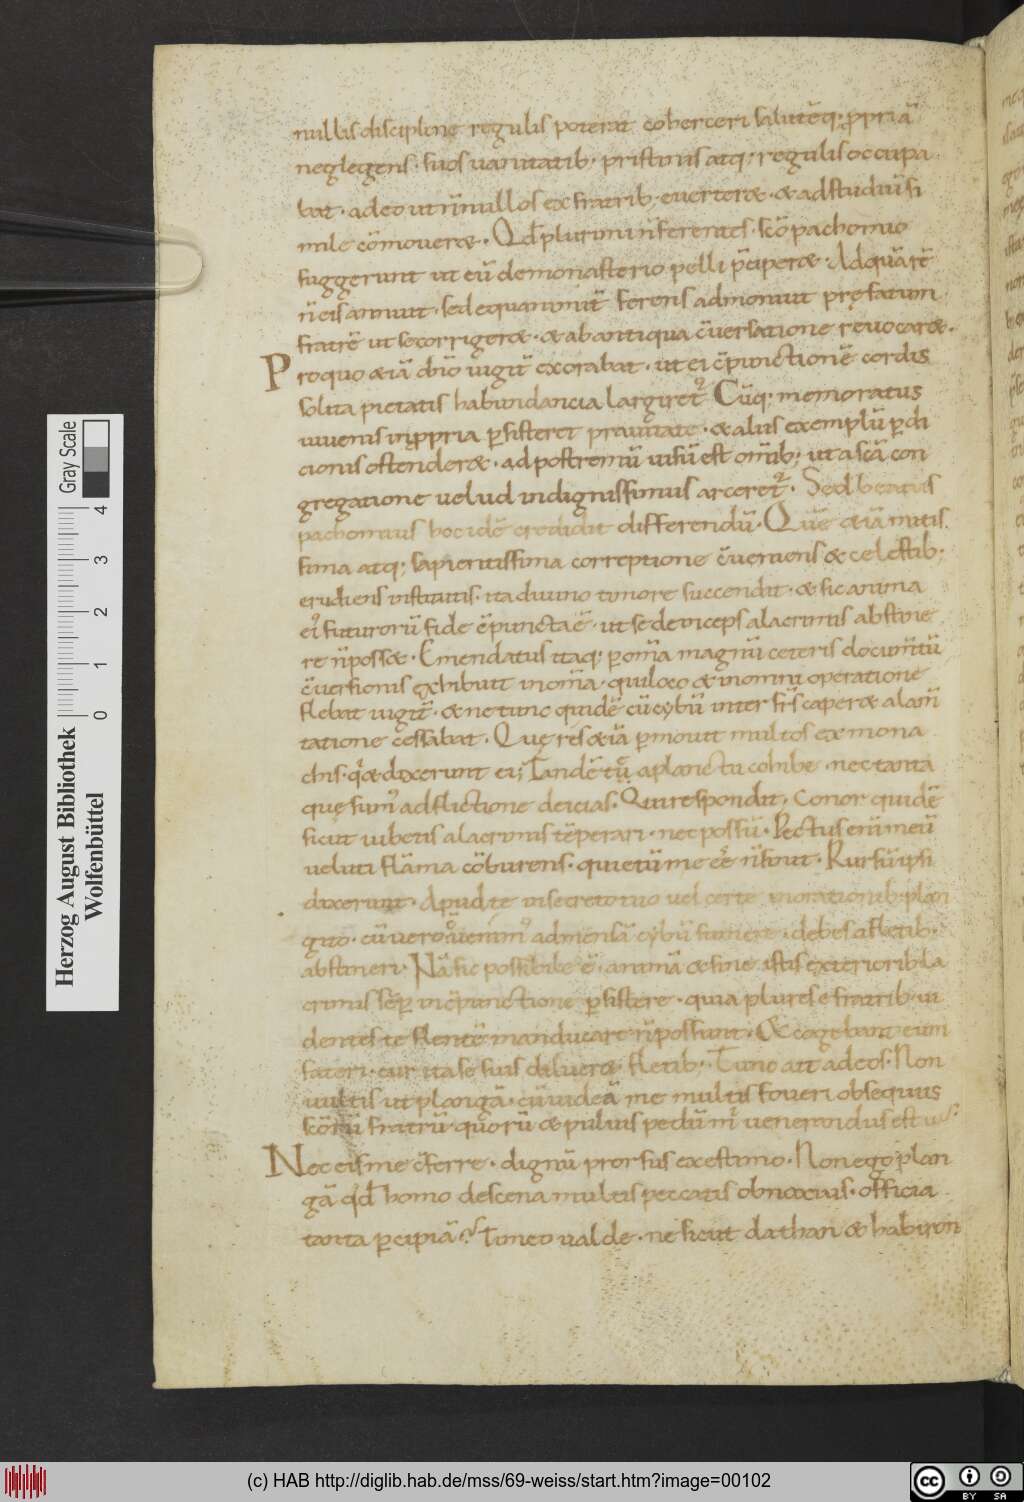 nullis discipline regulis poterat coherceri salutēq; ꝓpriā
neglegens · suos uanitatib; pristinis atq; regulis occupa
bat · adeo ut ñnullos ex fratrib; euerteræ · & ad studiū si
mile cōmoueræ · Qđ plurimi ñ ferentes · sc̄o pachomio
suggerunt ut eū de monasterio pelli p̄ciperæ · Ad quā rē
ñ eis annuit · sed equanimit̄ ferens admonuit pręfatum
fratrē ut se corrigeræ · & ab antiqua c̄uersatione reuocaræ ·
Pro quo &iā dn̄o iugit̄ exorabat · ut ei c̄punctionē cordis
solita pietatis habundancia largiret᷑ Cūq; memoratus
iuuenis in ꝓpria ꝑsisteret prauitate · & aliis exemplū ꝑdi
cionis ostenderæ · ad postremū uisū est om̄ib; ut a sc̄a con
gregatione uelud indignissimus arceret᷑ · Sed beatus
pachomius hoc idē credidit differendū · Quē &iā mitis
sima atq; sapientissima correptione c̄ueniens & celestib;
erudiens institutis · ita diuino timore succendit · & sic anima
ei᷒ futurorū fide c̄punctaē · ut se deinceps a lacrimis abstine
re ñ possæ · Emendatus itaq; ꝑ om̄a magnū ceteris docum̄tū
c̄uersionis exhibuit in om̄ia · qui loco & in omni operatione
flebat iugit̄ · & ne tunc quidē cū cybū inter fr̄s caperæ a lam̄
tatione cessabat · Quę res &iā ꝑmouit multos ex mona
chis · q̇ & dixerunt ei; Tandē tū a planctu cohibe · nec tanta
quę sum᷒ adflictione deicias · Qui respondit · Conor quidē
sicut iubetis a lacrimis tēperari · nec possū · Pectus enī meū
ueluti flāma cōburens · quietū me eē ñ sinit · Rursū ipsi
dixerunt · Apud te in secreto tuo uel certe in orationib; plan
gito · cū uero uenim᷒ ad mensā cybū sumere · debes a fletib;
abstineri · Nā sic possibile ē · animā & sine istis exteriorib; la
crimis sēꝑ in c̄punctione ꝑsistere · quia plures e fratrib; ui
dentes te flentē manducare ñ possunt · Et cogebant eum
fateri · cur ita se suis dilueræ fletib; · Tunc ait ad eos · Non
uultis ut plangā · cū uideā me multis foueri obsequiis
sc̄orū fratrū quorū & puluis pedū m̊ uenerandus est
Nec eis me c̄ferre · dignū prorsus existimo · Non ego plan
gā qđ homo de scena multis peccatis obnoxius · officia
tanta ꝑcipiā? Timeo ualde · ne sicut dathan & habiron
Herzog August Bibliothek
Wolfenbüttel
Gray Scale
0 1 2 3 4
(c) HAB http://diglib.hab.de/mss/69-weiss/start.htm?image=00102
cc BY SA